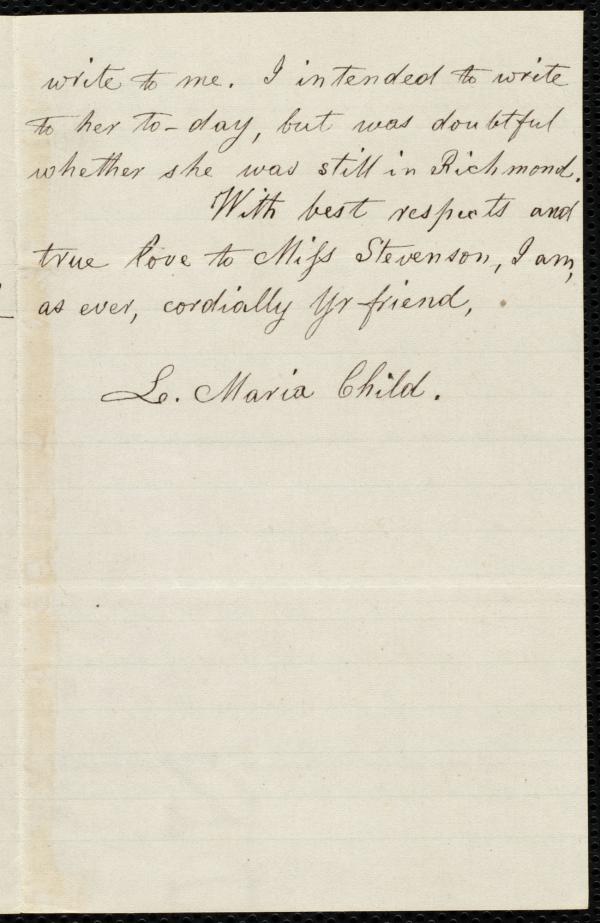 write to me. I intended to write
to her to-day, but was doubtful
whether she was still in Richmond.
With best respects and
true love to Miſs Stevenson, I am,
as ever, cordially Yr friend,
L. Maria Child.